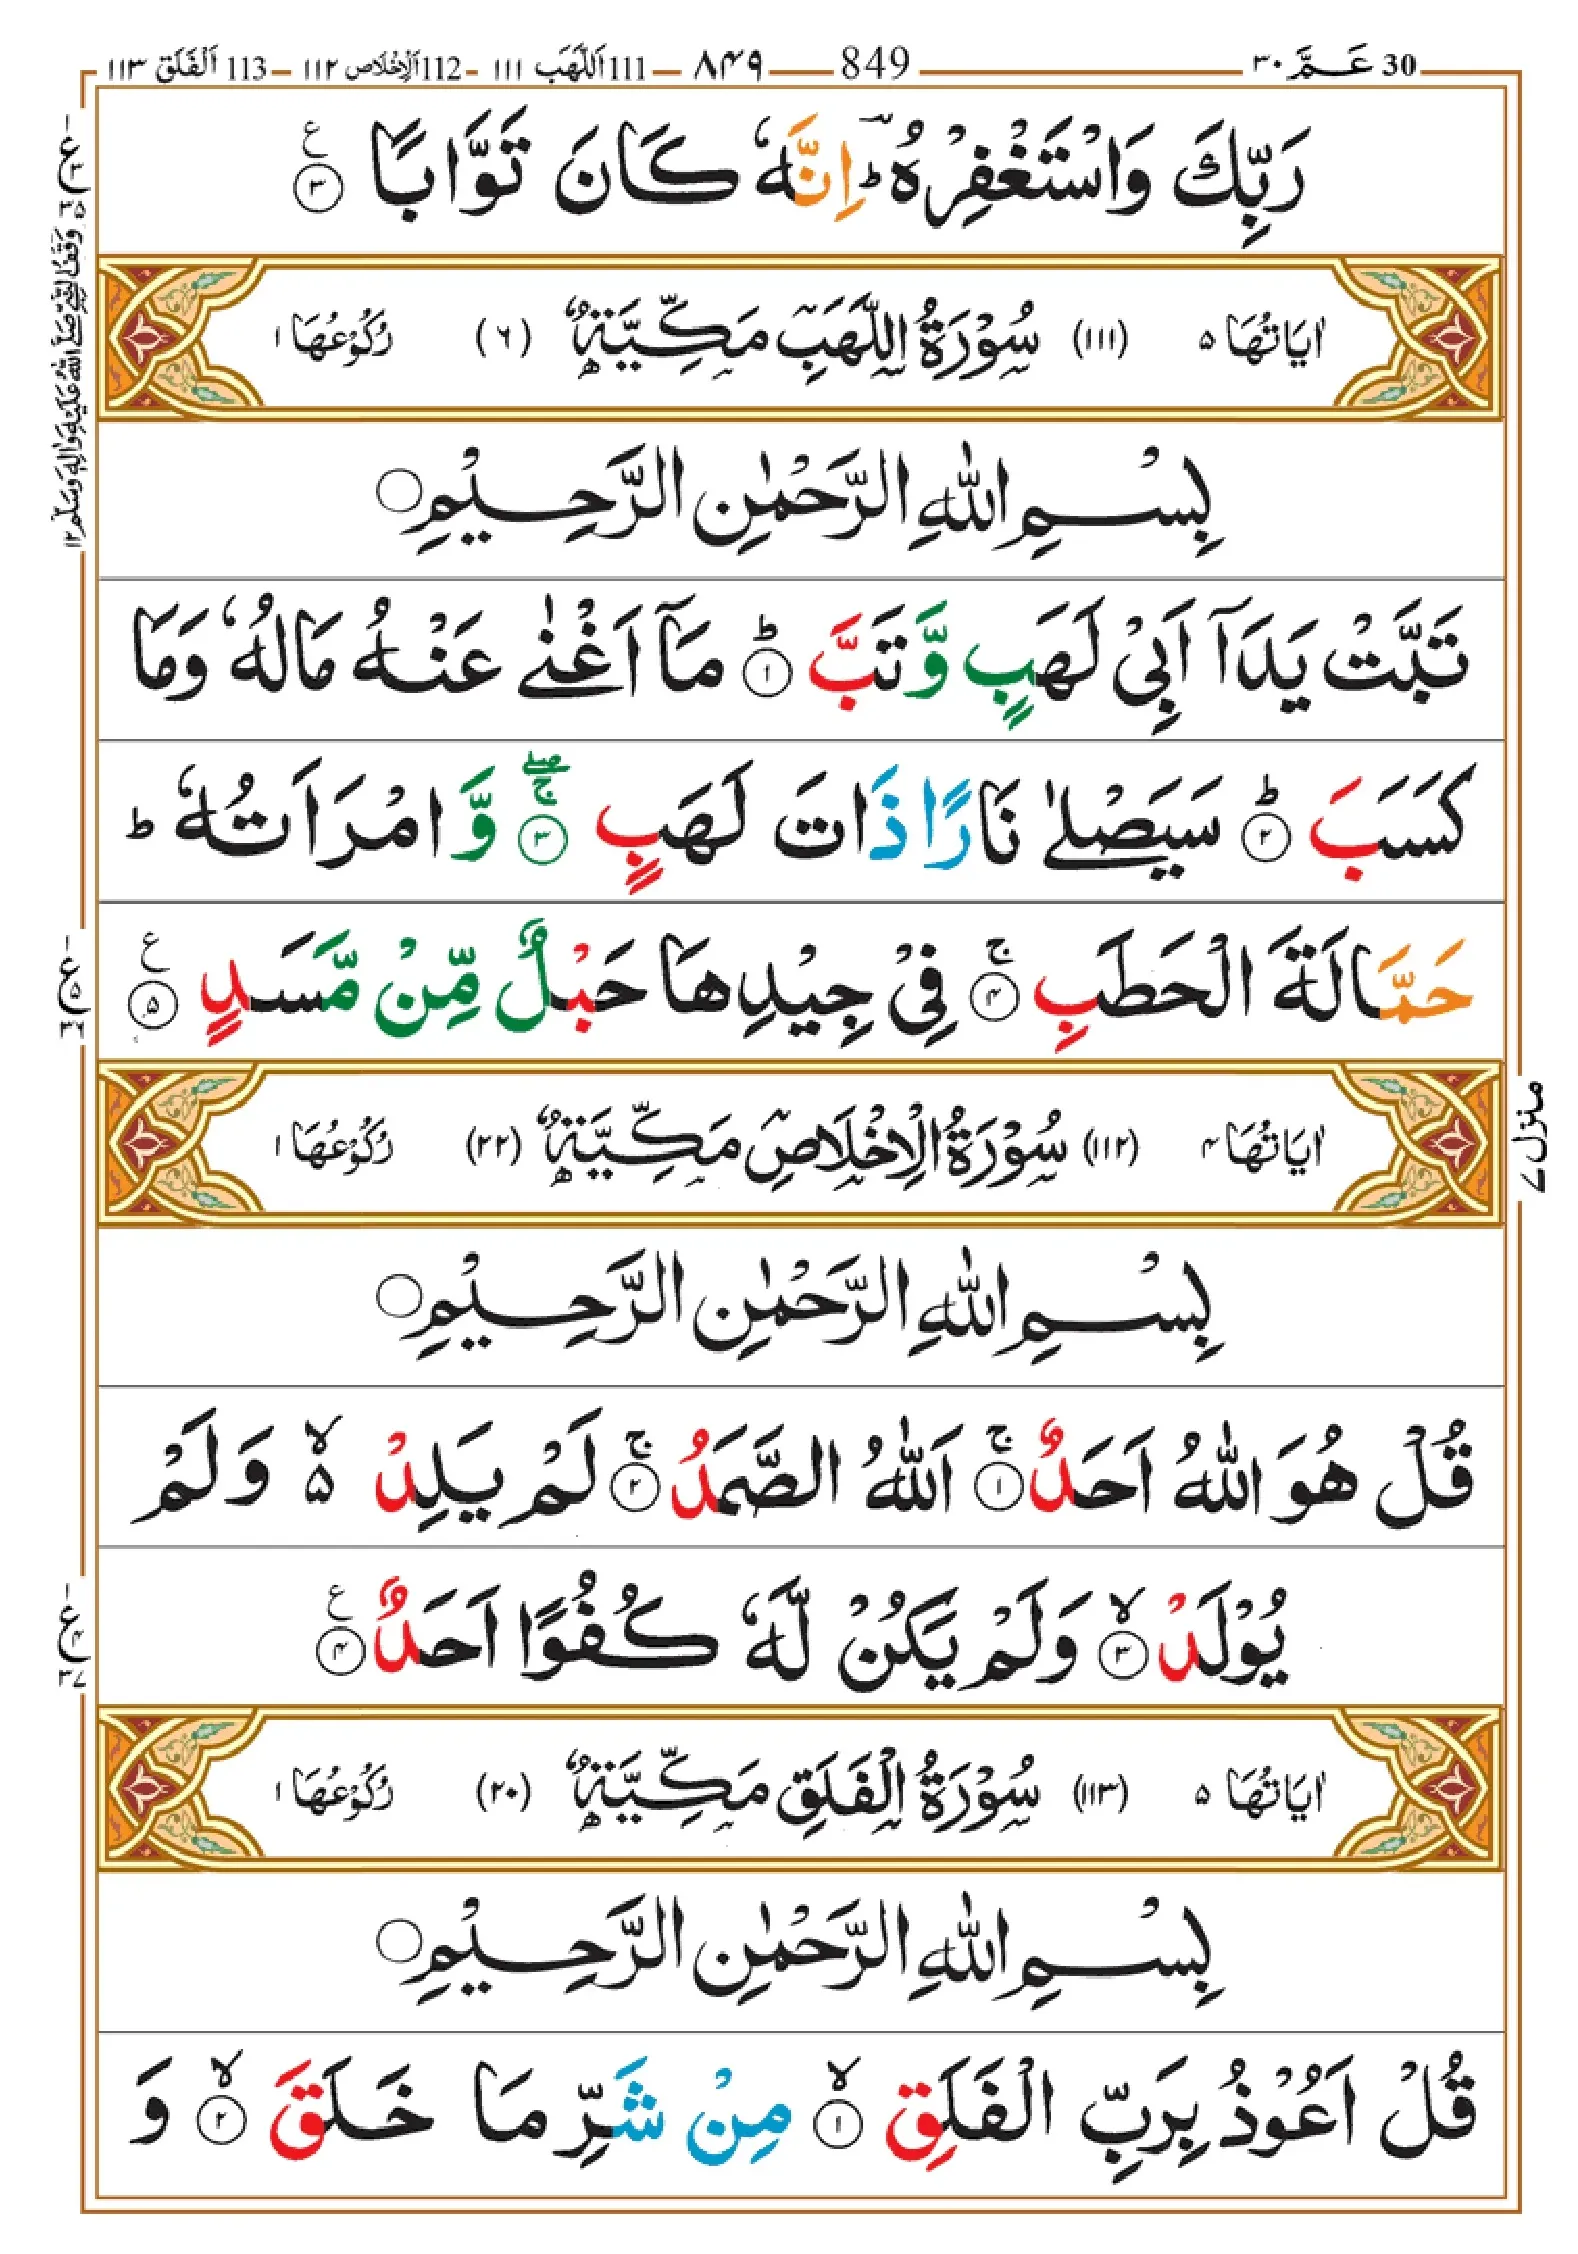 30 عَـمَّ ٣٠ 849 ٨٤٩ 111 اَللَّهَب ١١١ 112 اَلْاِخْلَاص ١١٢ 113 اَلْفَلَق ١١٣
رَبِّكَ وَاسْتَغْفِرْهُ ؔؕ اِنَّهٗ كَانَ تَوَّابًا ۝٣ ع
اٰيَاتُهَا ٥ (١١١) سُوْرَةُ اللَّهَبِ مَكِّيَّةٌ (٦) رُكُوْعُهَا ١
بِسْمِ اللّٰهِ الرَّحْمٰنِ الرَّحِيْمِ ۝
تَبَّتْ يَدَاۤ اَبِيْ لَهَبٍ وَّتَبَّ ؕ۝١ مَاۤ اَغْنٰى عَنْهُ مَالُهٗ وَمَا
كَسَبَ ؕ۝٢ سَيَصْلٰى نَارًا ذَاتَ لَهَبٍ ۚۖ۝٣ وَّامْرَاَتُهٗ ؕ
حَمَّالَةَ الْحَطَبِ ۚ۝٤ فِيْ جِيْدِهَا حَبْلٌ مِّنْ مَّسَدٍ ۝٥ ع
اٰيَاتُهَا ٤ (١١٢) سُوْرَةُ الْاِخْلَاصِ مَكِّيَّةٌ (٢٢) رُكُوْعُهَا ١
بِسْمِ اللّٰهِ الرَّحْمٰنِ الرَّحِيْمِ ۝
قُلْ هُوَ اللّٰهُ اَحَدٌ ۚ۝١ اَللّٰهُ الصَّمَدُ ۚ۝٢ لَمْ يَلِدْ ۙ۵ وَلَمْ
يُوْلَدْ ۙ۝٣ وَلَمْ يَكُنْ لَّهٗ كُفُوًا اَحَدٌ ۝٤ ع
اٰيَاتُهَا ٥ (١١٣) سُوْرَةُ الْفَلَقِ مَكِّيَّةٌ (٢٠) رُكُوْعُهَا ١
بِسْمِ اللّٰهِ الرَّحْمٰنِ الرَّحِيْمِ ۝
قُلْ اَعُوْذُ بِرَبِّ الْفَلَقِ ۙ۝١ مِنْ شَرِّ مَا خَلَقَ ۙ۝٢ وَ
منزل ٧
ع ٣ ٣٥
وَقْفُ النَّبِيِّ صَلَّى اللّٰهُ عَلَيْهِ وَاٰلِهٖ وَسَلَّمَ ١٢
ع ٥ ٣٦
ع ٤ ٣٧